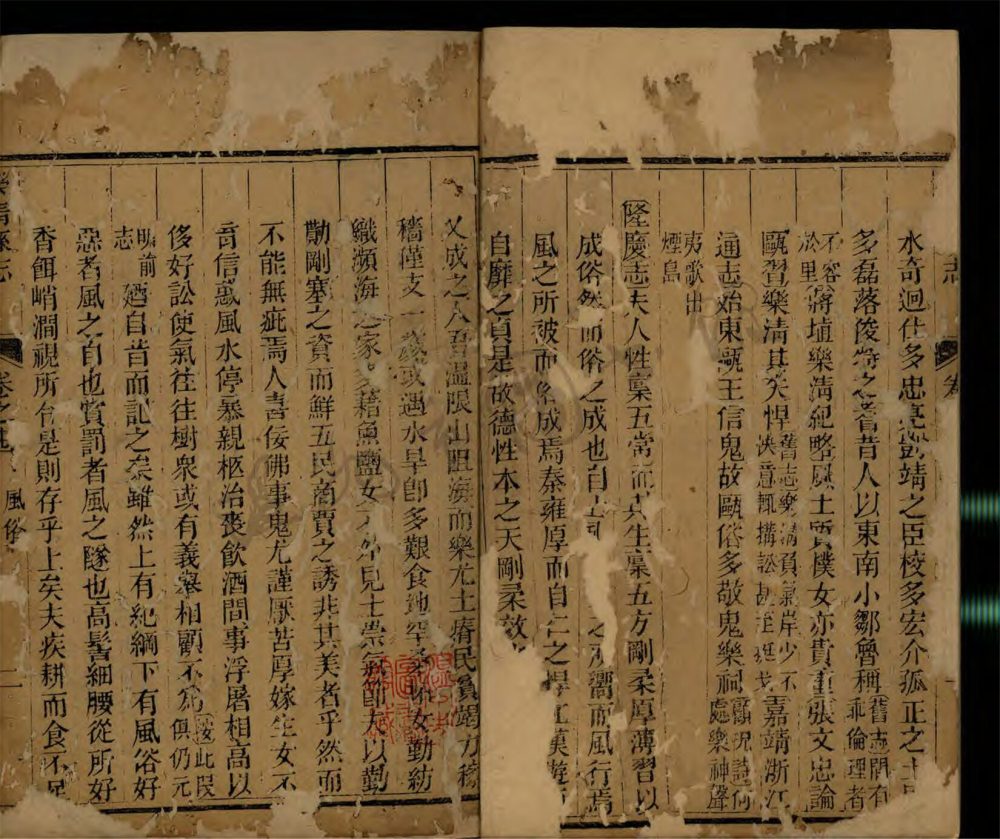 志 卷
水奇迴仕多忠亮 靖之臣校多宏介孤正之士
多磊落俊特之 昔人以東南小鄒魯稱舊志間有乖倫理者
不容於里將埴樂清紀略風土質樸女亦貴重張文忠論
甌習樂清其失悍舊志樂清負氣岸少不決意輒搆訟甚 嘉靖浙江
通志始東甌王信鬼故甌俗多敬鬼樂祠顧況詩何處樂神聲
夷歌出煙島
隆慶志夫人性稟五常而其生稟五方剛柔厚薄習以
成俗然而俗之成也自上 之所嚮而風行焉
風之所被而名成焉秦雍厚而自仁之 江漢
自靡之貞是故德性本之天剛柔效
又成之人吾溫限山阻海而樂尤土瘠民貧竭力
穡僅支一歲或遇水旱卽多艱食 女勤紡
織瀕海之家多藉魚鹽女 外見士崇 以勤
勤剛塞之資而鮮五民商賈之誘非其美者乎然而
不能無疵焉人喜佞佛事鬼尤謹厭苦厚嫁生女不
育信惑風水停暴親柩治喪飲酒間事浮屠相高以
侈好訟使氣往往樹衆或有義舉相顧不爲 此段俱仍元
明前志廼自昔而記之矣雖然上有紀綱下有風俗好
惡者風之自也賞罰者風之隧也高髻細腰從所好
香餌峭澗視所 是則存乎上矣夫疾耕而食不足
樂清縣志 卷之 風俗